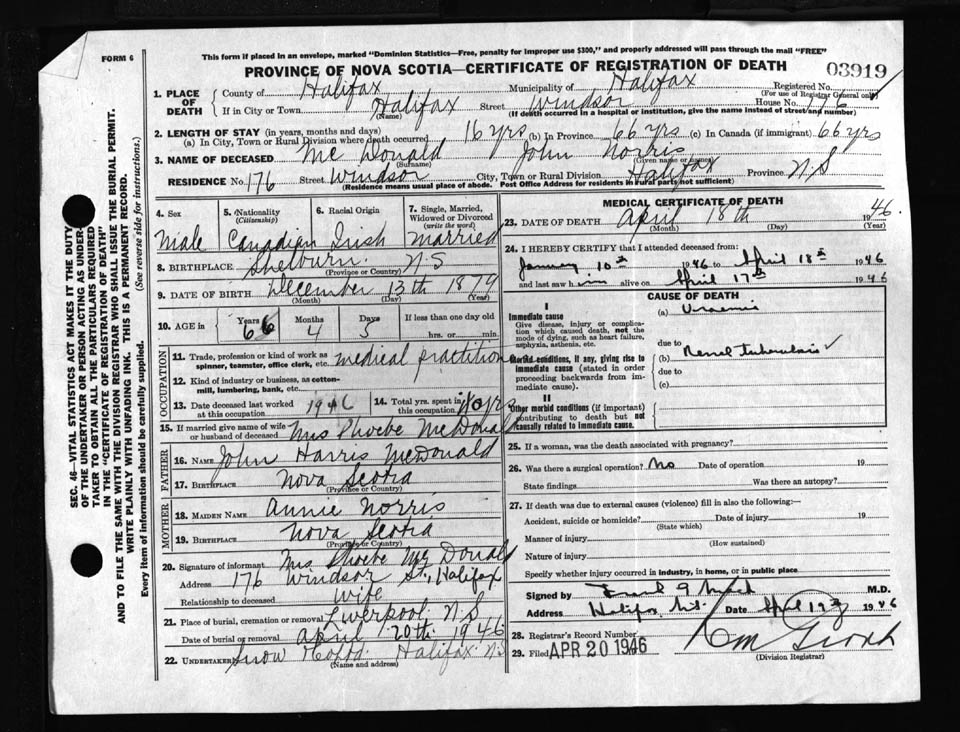 FORM 6
This form if placed in an envelope, marked "Dominion Statistics—Free, penalty for improper use $300," and properly addressed will pass through the mail "FREE"
PROVINCE OF NOVA SCOTIA—CERTIFICATE OF REGISTRATION OF DEATH
03919
1. PLACE OF DEATH
County of Halifax Municipality of Halifax Registered No.
(For use of Registrar General only)
If in City or Town Halifax Street Windsor House No. 176
(Name) (If death occurred in a hospital or institution, give the name instead of street and number)
2. LENGTH OF STAY (in years, months and days)
(a) In City, Town or Rural Division where death occurred 16 yrs (b) In Province 66 yrs (c) In Canada (if immigrant) 66 yrs
3. NAME OF DECEASED Mc Donald John Norris
(Surname) (Given name or names)
RESIDENCE No. 176 Street Windsor City, Town or Rural Division Halifax Province N.S
(Residence means usual place of abode. Post Office Address for residents in rural parts not sufficient)
4. Sex
Male
5. Nationality
(Citizenship)
Canadian
6. Racial Origin
Irish
7. Single, Married, Widowed or Divorced
(write the word)
Married
8. BIRTHPLACE Shelburn. N.S
(Province or Country)
9. DATE OF BIRTH December 13th 1879
(Month) (Day) (Year)
10. AGE in Years 66 Months 4 Days 5 If less than one day
hrs. or min.
OCCUPATION
11. Trade, profession or kind of work as spinner, teamster, office clerk, etc. medical practition
12. Kind of industry or business, as cotton-mill, lumbering, bank, etc.
13. Date deceased last worked at this occupation 1946
14. Total yrs. spent in this occupation 40 yrs
15. If married give name of wife or husband of deceased Mrs Phoebe McDonald
FATHER
16. NAME John Harris McDonald
17. BIRTHPLACE Nova Scotia
(Province or Country)
MOTHER
18. MAIDEN NAME Annie Norris
19. BIRTHPLACE Nova Scotia
(Province or Country)
20. Signature of informant Mrs Phoebe Mc Donald
Address 176 Windsor St., Halifax
Relationship to deceased wife
21. Place of burial, cremation or removal Liverpool N.S
Date of burial or removal April 20th 1946
22. Undertaker Snow Halifax N.S
(Name and address)
MEDICAL CERTIFICATE OF DEATH
23. DATE OF DEATH April 18th 1946.
(Month) (Day) (Year)
24. I HEREBY CERTIFY that I attended deceased from:
January 10th 1946 to April 18th 1946
and last saw him alive on April 17th 1946
CAUSE OF DEATH
I
Immediate cause
Give disease, injury or complication which caused death, not the mode of dying, such as heart failure, asphyxia, asthenia, etc.
(a) Uraemia
due to
Morbid conditions, if any, giving rise to immediate cause (stated in order proceeding backwards from immediate cause).
(b) Renal tuberculosis
due to
(c)
II
Other morbid conditions (if important) contributing to death but not causally related to immediate cause.
25. If a woman, was the death associated with pregnancy?
26. Was there a surgical operation? No Date of operation 19
State findings Was there an autopsy?
27. If death was due to external causes (violence) fill in also the following:—
Accident, suicide or homicide? Date of injury 19
(State which)
Manner of injury
(How sustained)
Nature of injury
Specify whether injury occurred in industry, in home, or in public place
Signed by M.D.
Address Halifax N.S. Date April 19th 1946
28. Registrar's Record Number
29. Filed APR 20 1946
(Division Registrar)
SEC. 46—VITAL STATISTICS ACT MAKES IT THE DUTY OF THE UNDERTAKER OR PERSON ACTING AS UNDERTAKER TO OBTAIN ALL THE PARTICULARS REQUIRED IN THE "CERTIFICATE OF REGISTRATION OF DEATH" AND TO FILE THE SAME WITH THE DIVISION REGISTRAR WHO SHALL ISSUE THE BURIAL PERMIT.
WRITE PLAINLY WITH UNFADING INK. THIS IS A PERMANENT RECORD.
Every item of information should be carefully supplied. (See reverse side for instructions.)